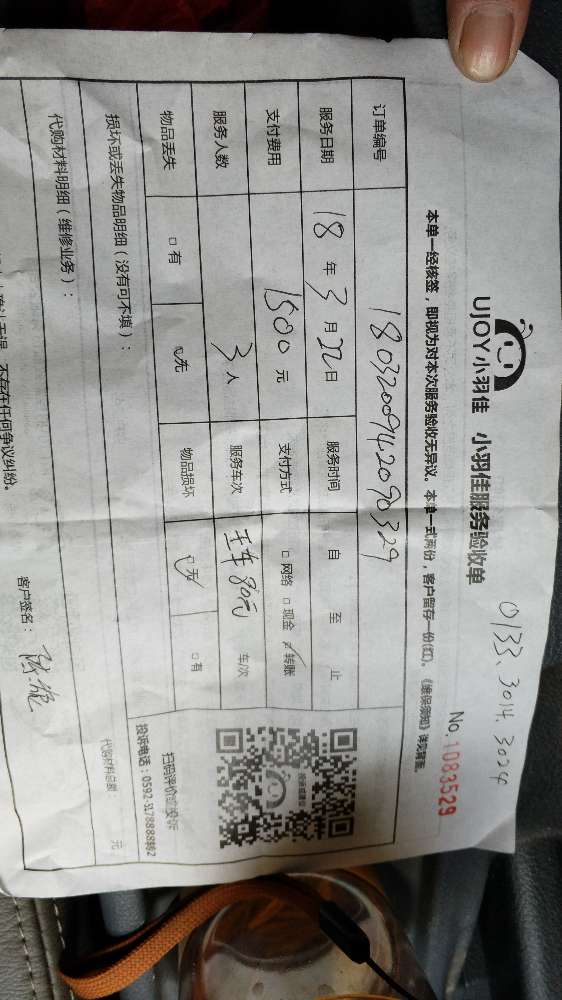 0133、3014、3024
UJOY小羽佳 小羽佳服务验收单
No. 1083529
本单一经核签，即视为对本次服务验收无异议。本单一式两份，客户留存一份(红)。《维保须知》详见背面。
订单编号 180320094209032​9
服务日期 18 年 3 月 22 日 服务时间 自 至 止
支付费用 1500 元 支付方式 □ 网络 □ 现金 ☑ 转账
服务人数 3 人 服务车次 80元 车次
物品丢失 □ 有 ☑ 无 物品损坏 ☑ 无 □ 有
损坏或丢失物品明细（没有可不填）：
代购材料明细（维修业务）：
代购材料总额： 元
扫码评价或投诉
投诉电话：0592-5178888转62
不存在任何争议纠纷。
客户签名：